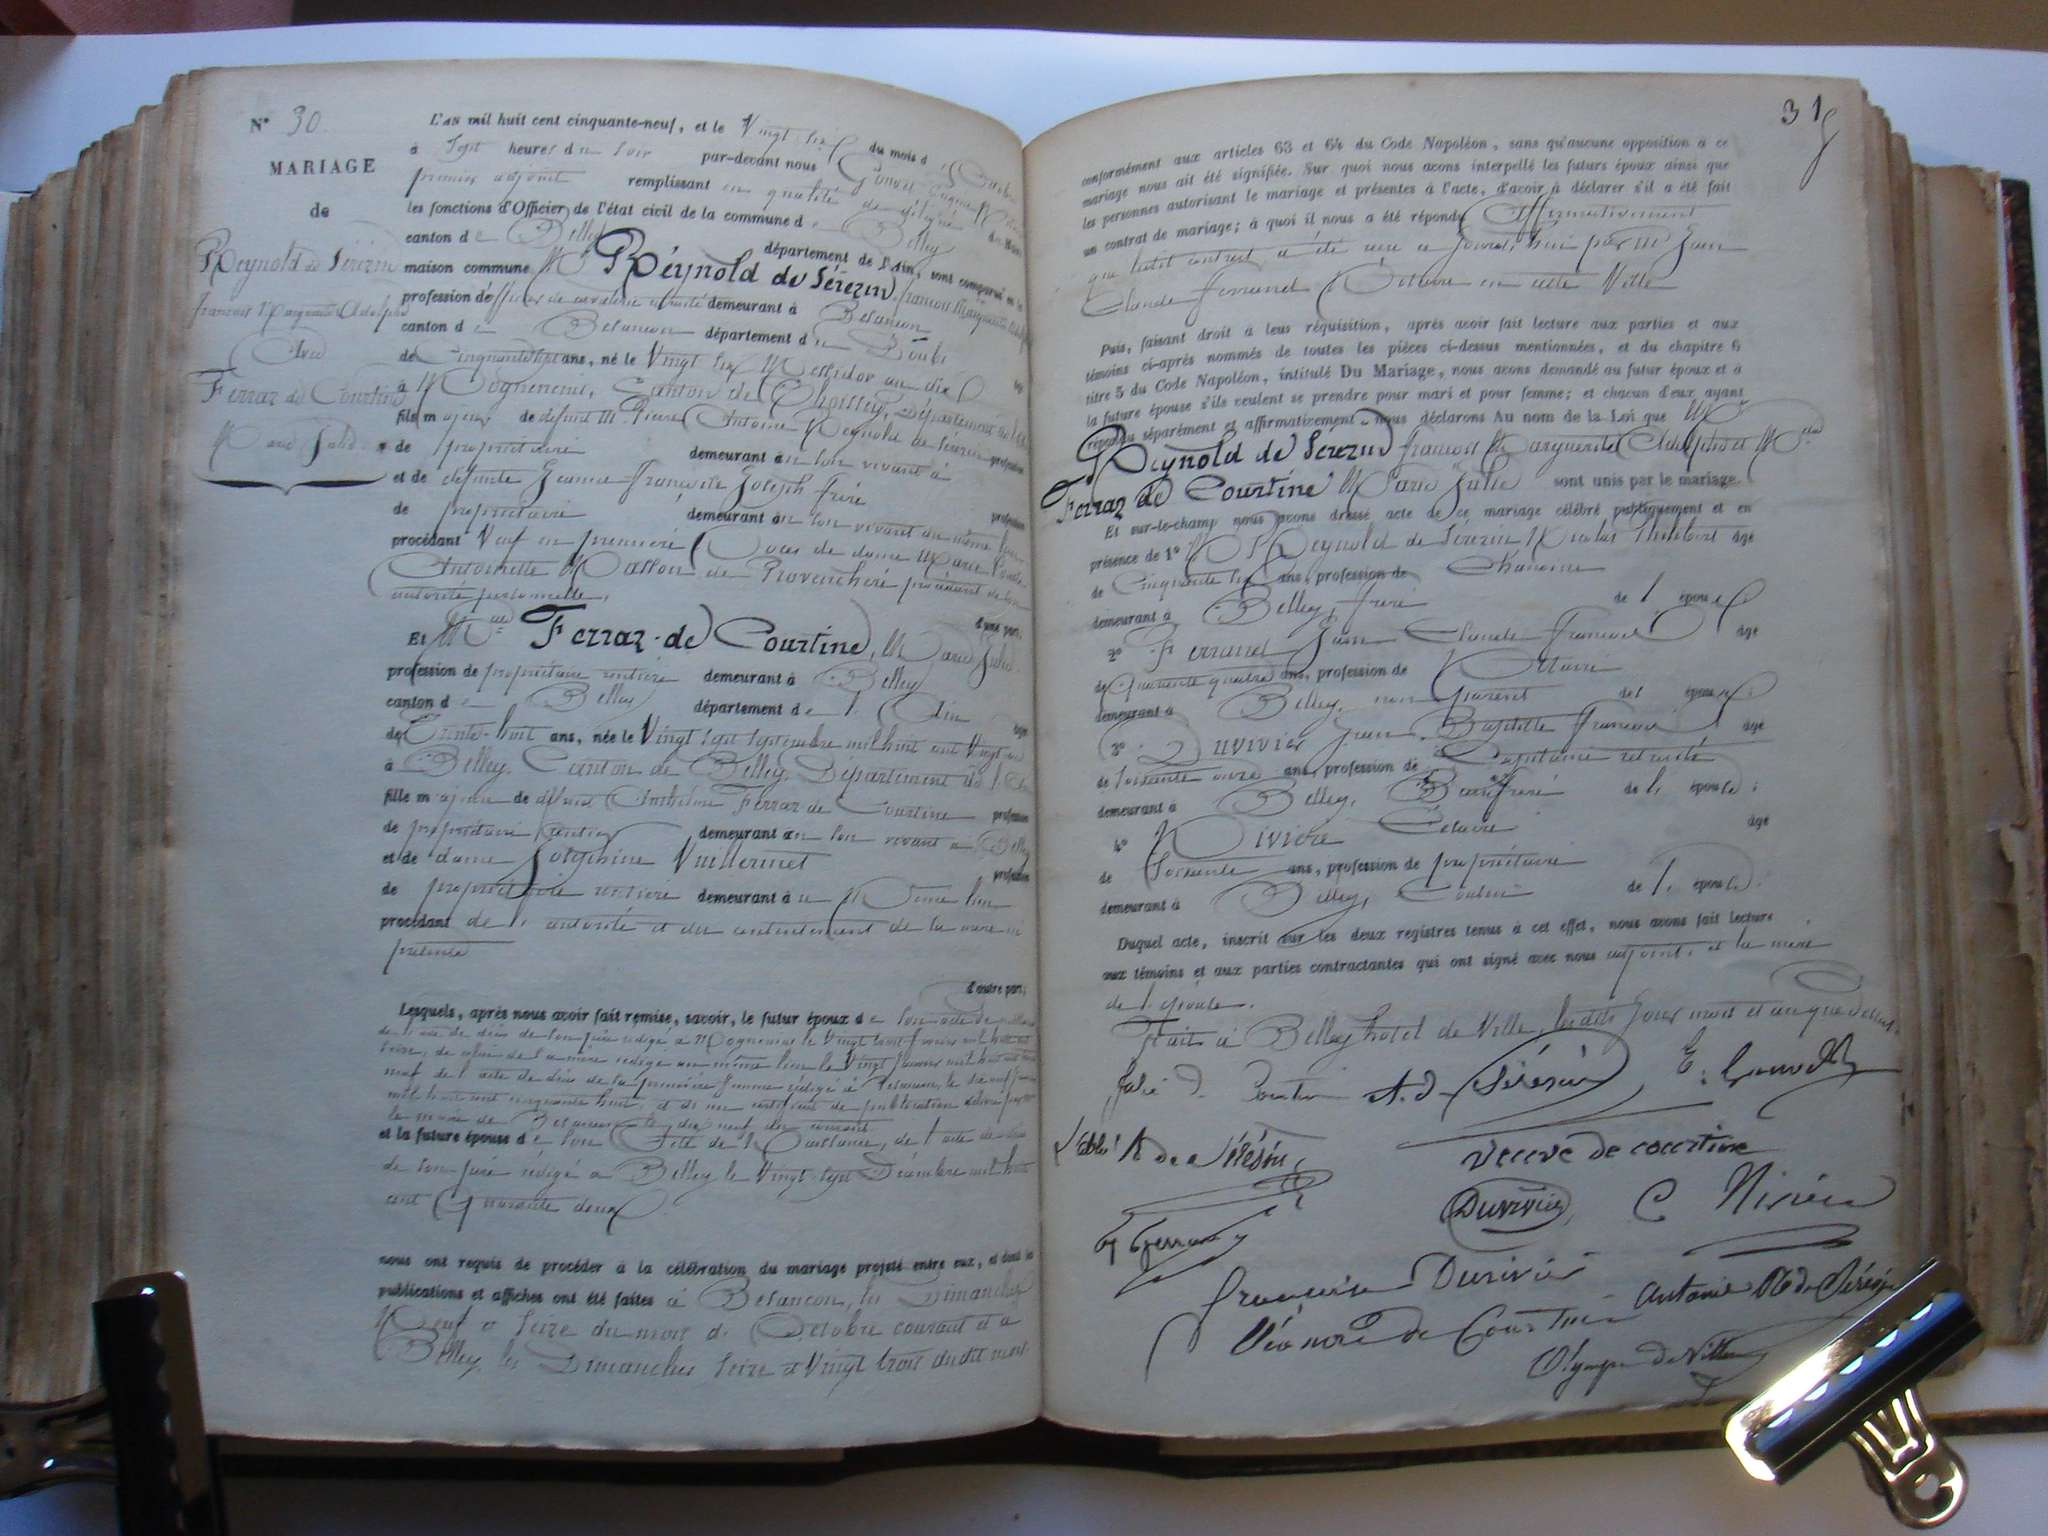 N° 30.
MARIAGE
de
Reynold de Sérézin
françois Marguerite Adolphe
Avec
Ferraz de Courtine
Marie Julie.
L'an mil huit cent cinquante-neuf, et le Vingt six du mois d'Octobre
à Sept heures du Soir par-devant nous
premier adjoint remplissant en qualité de délégué
les fonctions d'Officier de l'état civil de la commune de Belley
canton de Belley département de l'Ain, sont comparus en la
maison commune Mr Reynold de Sérezin, françois Marguerite Adolphe
profession d'officier de cavalerie retraité demeurant à Besançon
canton de Besançon département du Doubs
de Cinquante sept ans, né le Vingt six Messidor an dix
à Mogneneins, Canton de Thoissey, Département de l'Ain
fils majeur de défunt M. Pierre Antoine Reynold de Sérezin profession
de propriétaire demeurant en son vivant à
et de défunte Jeanne françoise Joseph frère
de propriétaire demeurant en son vivant au même lieu profession
procédant Veuf en première Noces de dame Marie Louise
Antoinette Masson de Provenchère procédant de son
autorité personnelle.
d'une part;
Et Melle Ferraz de Courtine, Marie Julie
profession de propriétaire rentière demeurant à Belley
canton de Belley département de l'Ain
de Trente-huit ans, née le Vingt sept septembre mil huit cent Vingt un
à Belley, Canton de Belley, Département de l'Ain
fille majeure de défunt Anthelme Ferraz de Courtine profession
de propriétaire rentier demeurant en son vivant à Belley
et de dame Joséphine Vuillermet profession
de propriétaire rentière demeurant au Même lieu
procédant de l'autorité et du consentement de la mère ici
présente
d'autre part;
Lesquels, après nous avoir fait remise, savoir, le futur époux de son acte de naissance
de l'acte de décès de son père rédigé à Mogneneins le Vingt
de celui de sa mère rédigé au même lieu le Vingt Janvier mil huit cent
neuf de l'acte de décès de sa première femme rédigé à Besançon, le dix neuf
mil huit cent cinquante huit, et de un certificat de publication délivré par
le maire de Besançon le dix neuf du courant
et la future épouse de son Acte de Naissance, de l'acte de décès
de son père rédigé à Belley le Vingt sept Décembre mil huit
cent Quarante deux.
nous ont requis de procéder à la célébration du mariage projeté entre eux, et dont les
publications et affiches ont été faites à Besançon, les Dimanches
Neuf et Seize du mois d'Octobre courant et à
Belley, les Dimanches Seize et Vingt trois dudit mois
31
conformément aux articles 63 et 64 du Code Napoléon, sans qu'aucune opposition à ce
mariage nous ait été signifiée. Sur quoi nous avons interpellé les futurs époux ainsi que
les personnes autorisant le mariage et présentes à l'acte, d'avoir à déclarer s'il a été fait
un contrat de mariage; à quoi il nous a été répondu Affirmativement
que ledit contrat a été reçu aujourd'hui par Me Jean
Claude Ferrand Notaire en cette Ville
Puis, faisant droit à leur réquisition, après avoir fait lecture aux parties et aux
témoins ci-après nommés de toutes les pièces ci-dessus mentionnées, et du chapitre 6
titre 5 du Code Napoléon, intitulé Du Mariage, nous avons demandé au futur époux et à
la future épouse s'ils veulent se prendre pour mari et pour femme; et chacun d'eux ayant
répondu séparément et affirmativement, nous déclarons Au nom de la Loi que Mr
Reynold de Sérezin françois Marguerite Adolphe et Melle
Ferraz de Courtine Marie Julie sont unis par le mariage.
Et sur-le-champ nous avons dressé acte de ce mariage célébré publiquement et en
présence de 1° M Reynold de Sérezin Nicolas Philibert âgé
de Cinquante six ans, profession de Chanoine
demeurant à Belley, frère de l'époux
2° Ferrand Jean Claude François âgé
de Quarante quatre ans, profession de Notaire
demeurant à Belley, non parent de l'époux;
3° Duvivier Jean Baptiste François âgé
de soixante onze ans, profession de Capitaine retraité
demeurant à Belley, Beau frère de l'épouse;
4° Nivière César âgé
de Soixante ans, profession de propriétaire
demeurant à Belley, Cousin de l'épouse.
Duquel acte, inscrit sur les deux registres tenus à cet effet, nous avons fait lecture
aux témoins et aux parties contractantes qui ont signé avec nous adjoint, et la mère
de l'épouse.
Fait à Belley hotel de Ville, lesdits Jour mois et an que dessus.
Julie d. Courtine A. d. Sérésin
L'abbé R de Sérésin veuve de courtine
Duvivier C Nivière
françoise Duvivier Antonie R de Sérésin
Léonore de Courtine
Olympe de